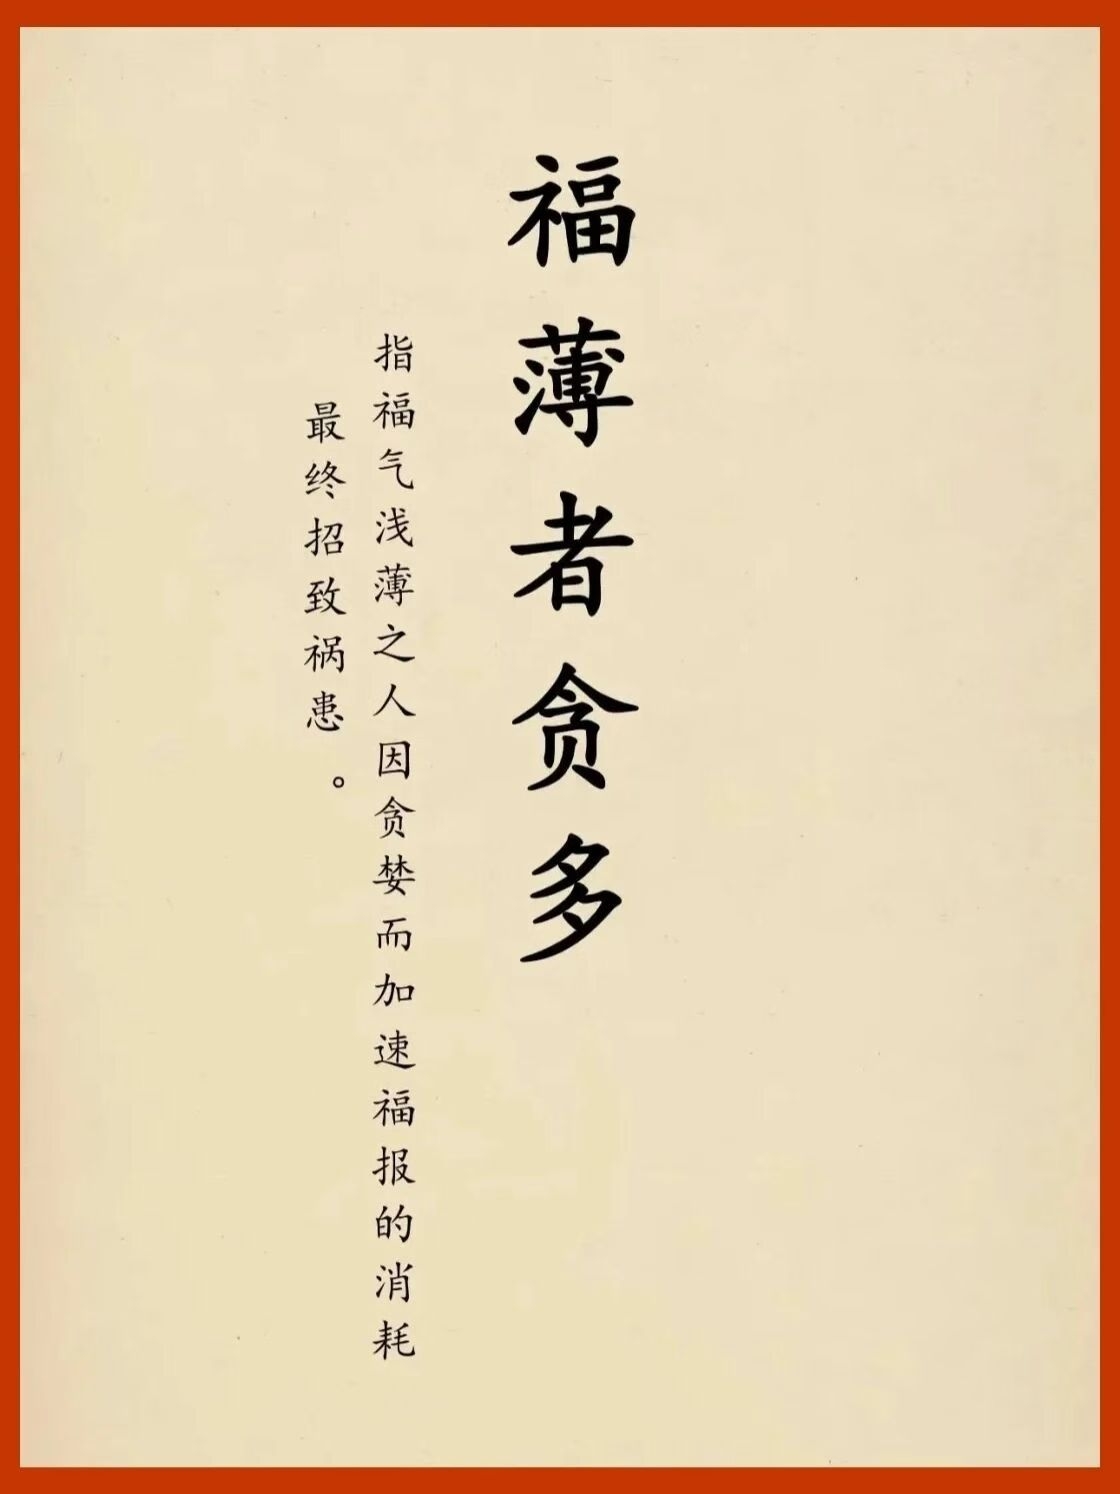 福薄者贪多
指福气浅薄之人因贪婪而加速福报的消耗
最终招致祸患。